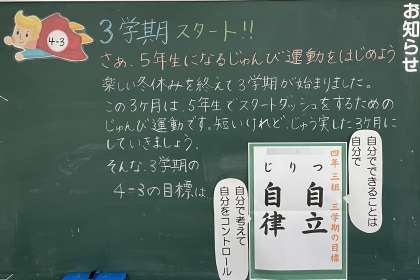 お知らせ
4-3
3学期スタート!!
さぁ、5年生になるじゅんび運動をはじめよう
楽しい冬休みを終えて3学期が始まりました。
この3ヶ月は、5年生でスタートダッシュをするための
じゅんび運動です。短いけれど、じゅう実した3ヶ月に
していきましょう。
そんな、3学期の
4-3の目標は
四年三組 三学期の目標
自立
じりつ
自律
自分でできることは
自分で
自分で考えて
自分をコントロール